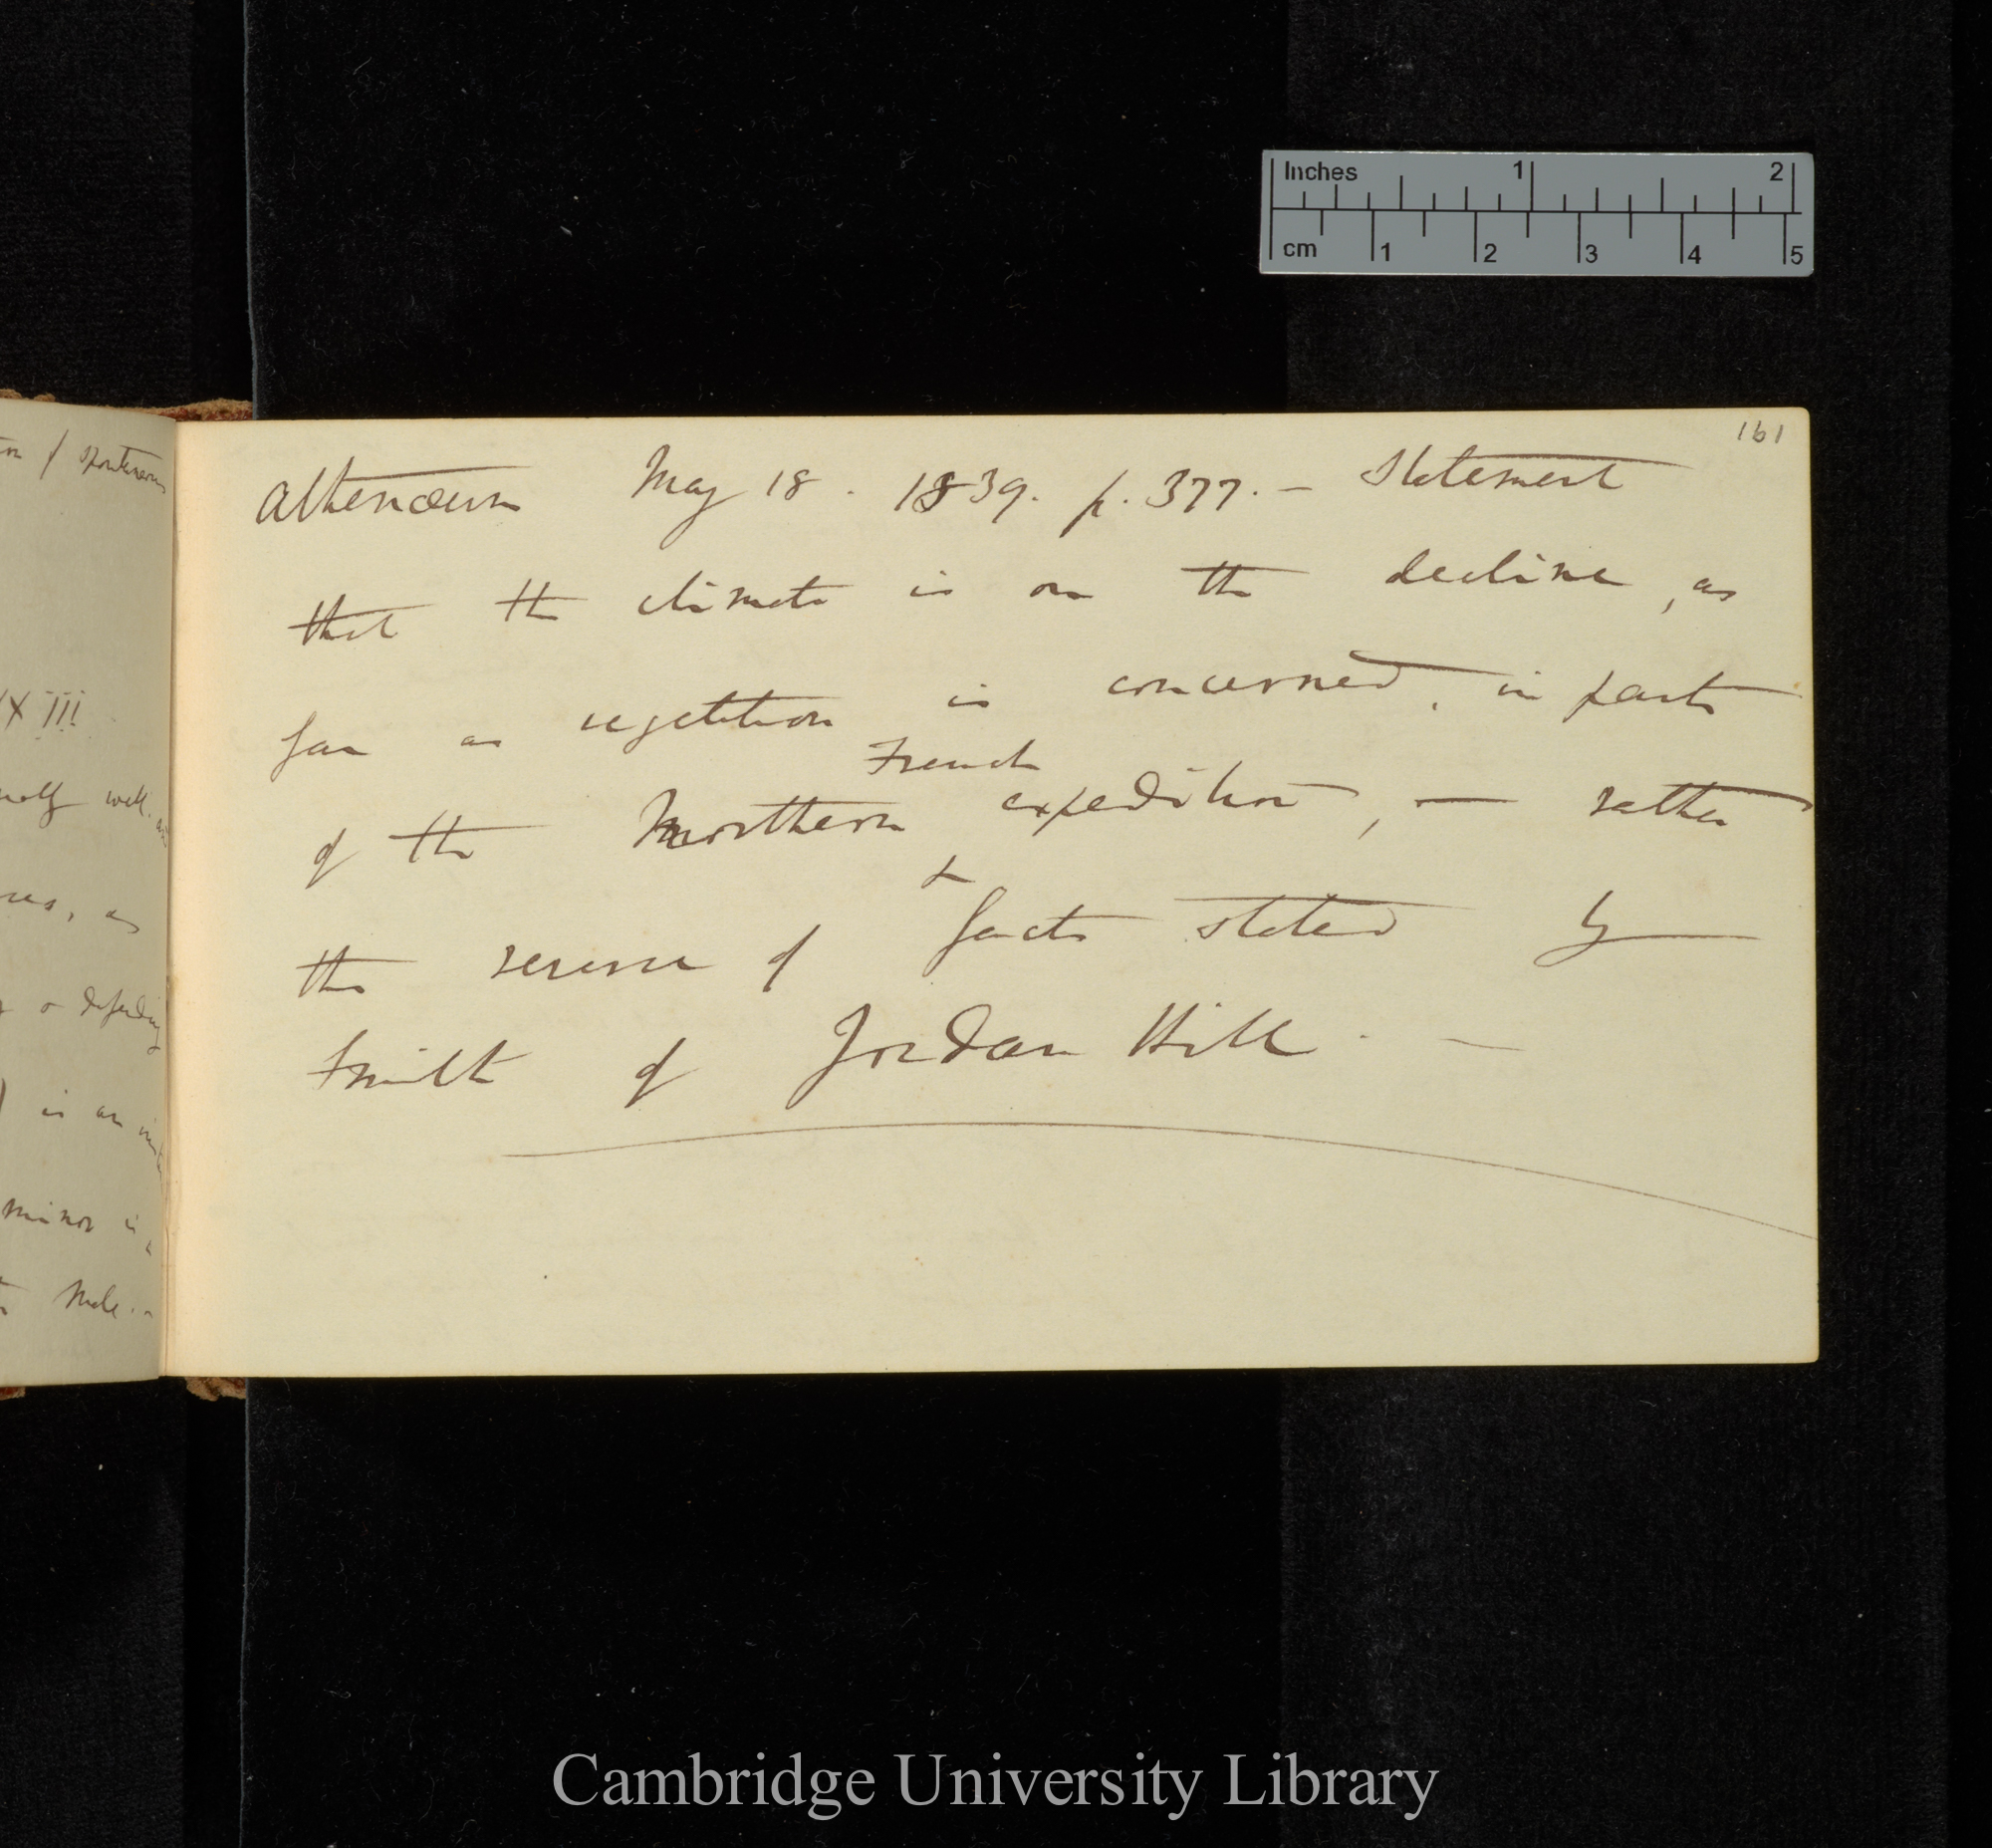 161
Athenæum May 18. 1839. p. 377. — Statement
that the climate is on the decline, as
far as vegetation is concerned, in parts
French
of the Northern expedition, — rather
the reverse of facts stated by
Smith of Jordan Hill. —
Inches 1 2
cm 1 2 3 4 5
of spontaneous
XIII
well.
as
is an
minor is
male. —
Cambridge University Library